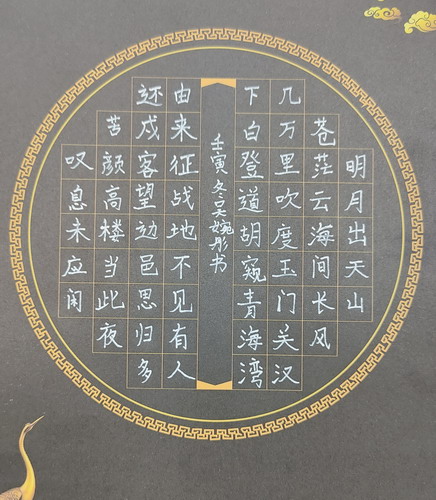 明月出天山
苍茫云海间长风
几万里吹度玉门关汉
下白登道胡窥青海湾
由来征战地不见有人
还戍客望边邑思归多
苦颜高楼当此夜
叹息未应闲
壬寅冬吴婉彤书